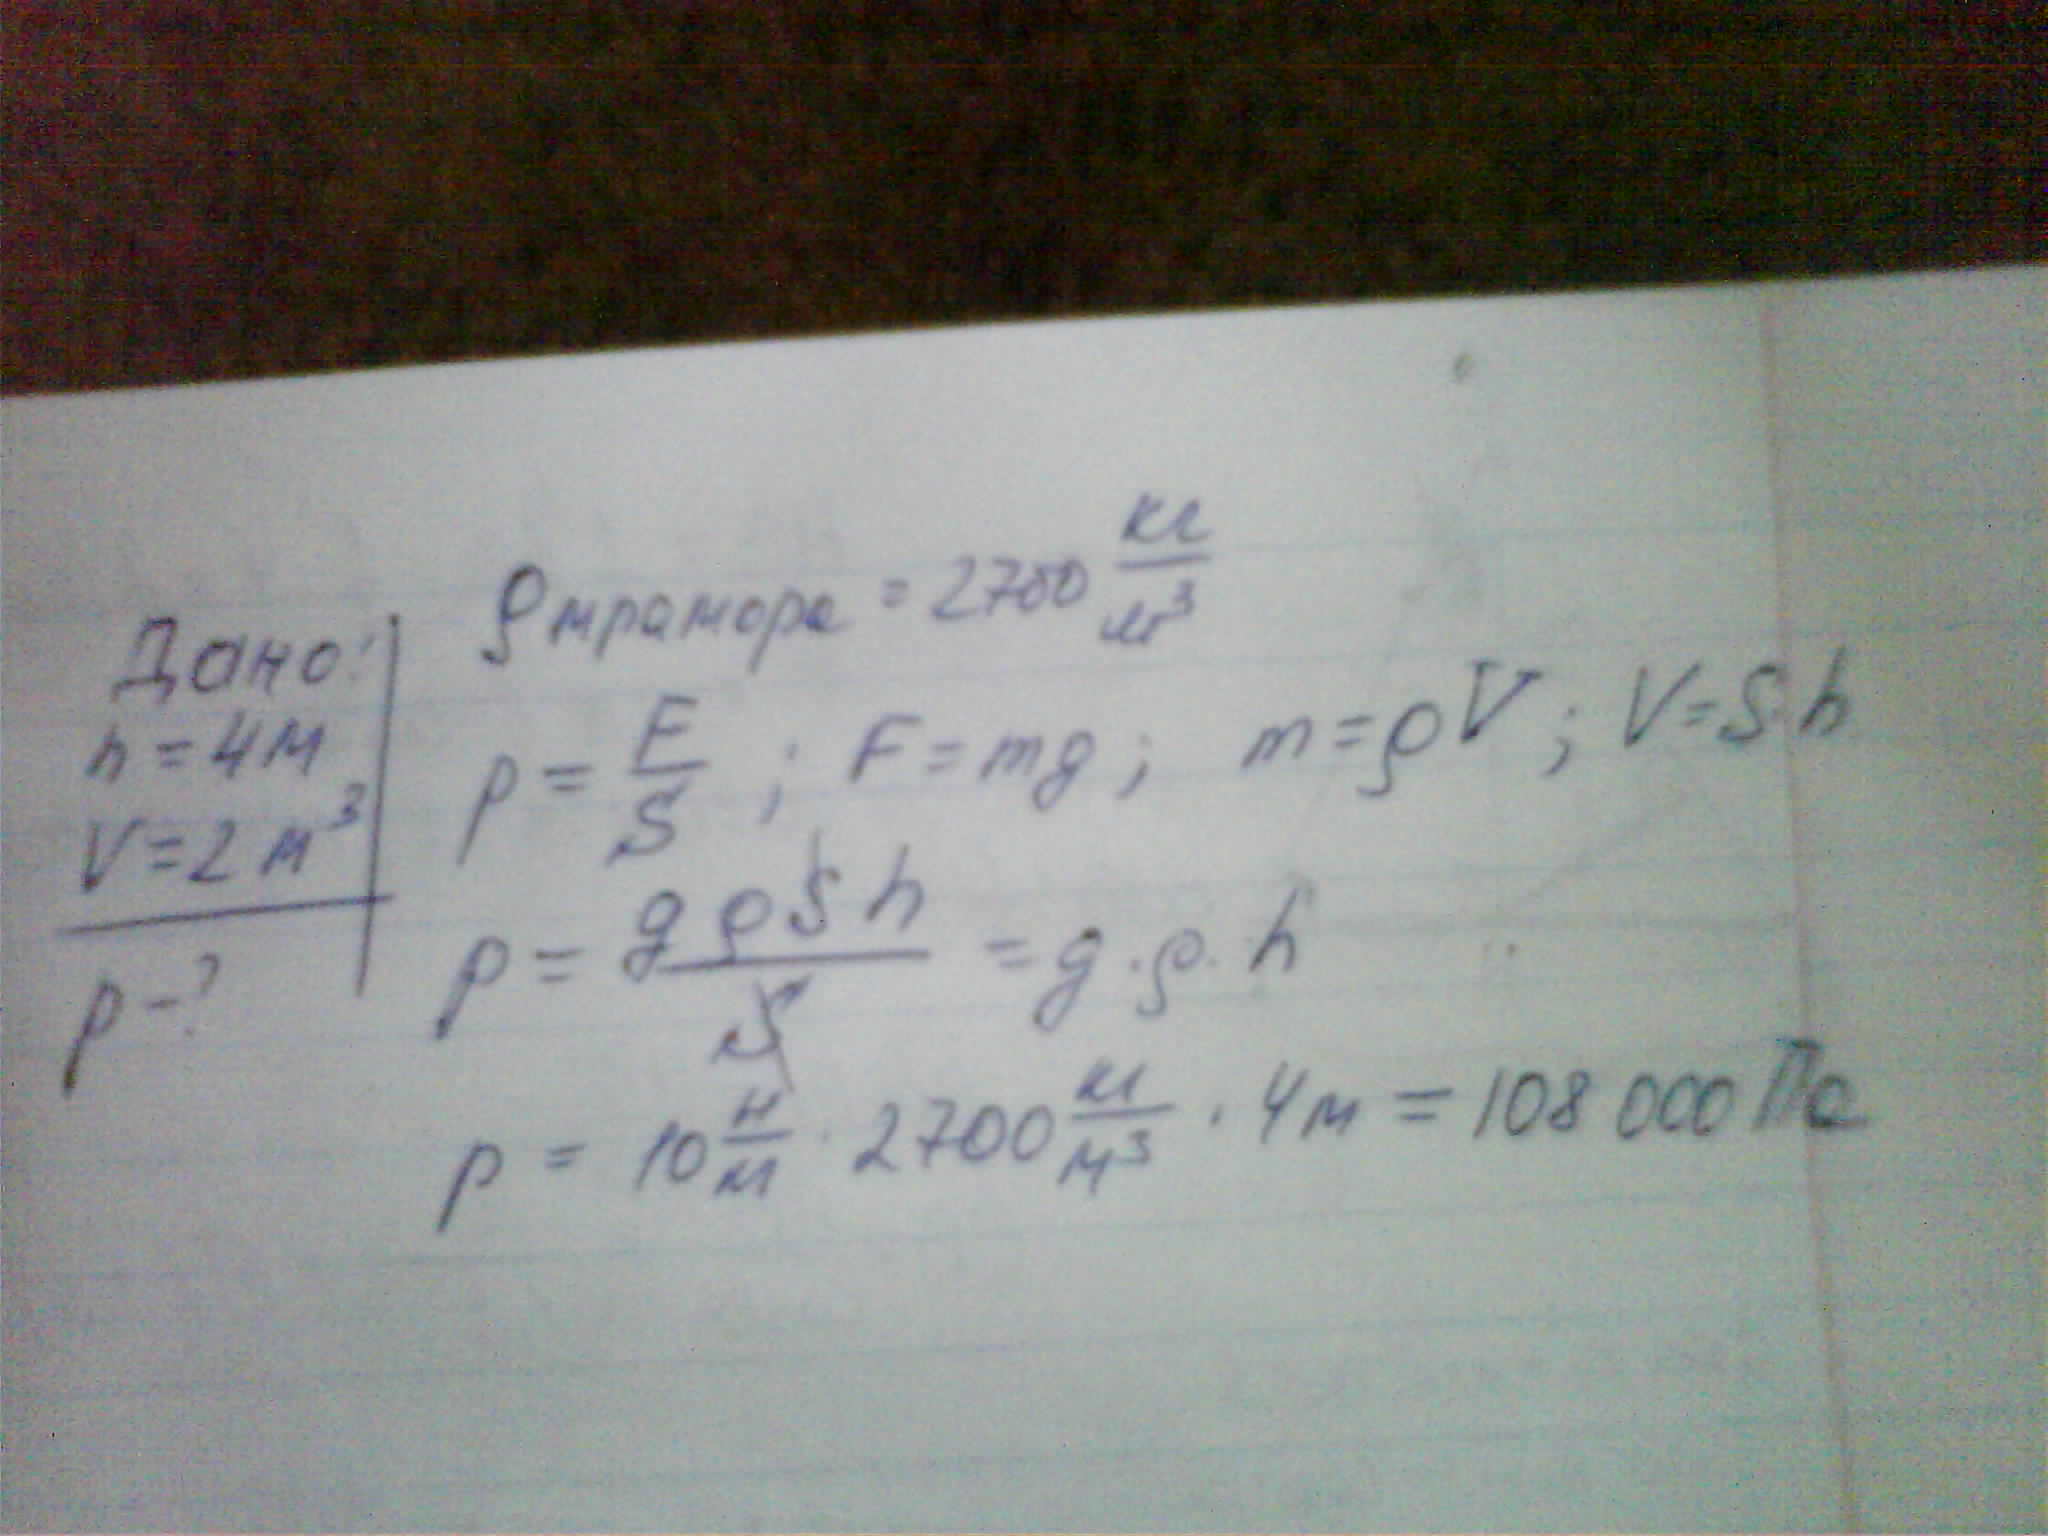 Дано:
h = 4м
V = 2 м³
p - ?
ρ мрамора = 2700 кг/м³
p = F/S ; F = mg ; m = ρV ; V = S h
p = gρSh/S = g · ρ · h
p = 10 н/м · 2700 кг/м³ · 4м = 108 000 Па